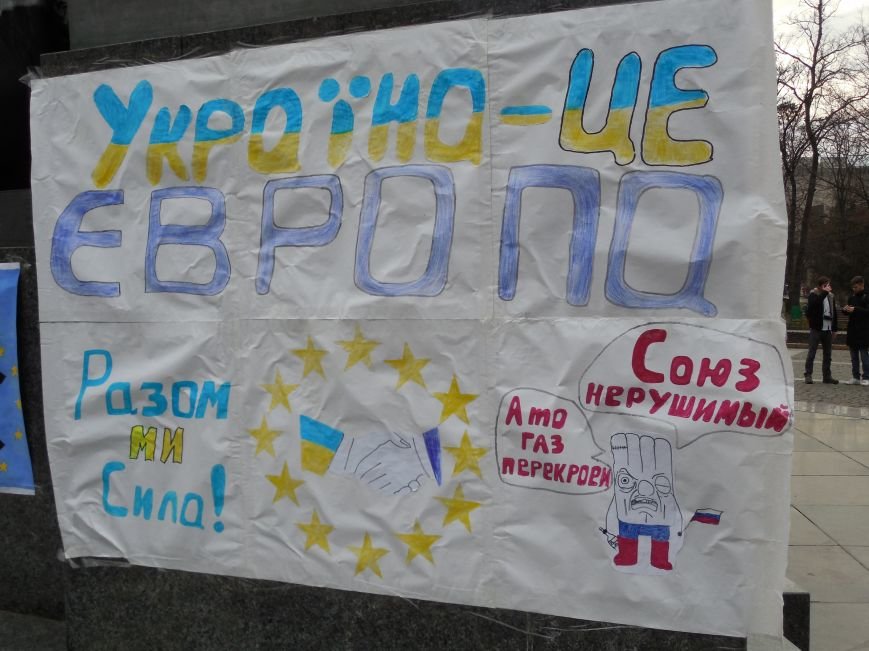 Україна - ЦЕ
ЄВРОПА
Разом
ми
Сила!
Союз
нерушимый
А то
газ
перекроем